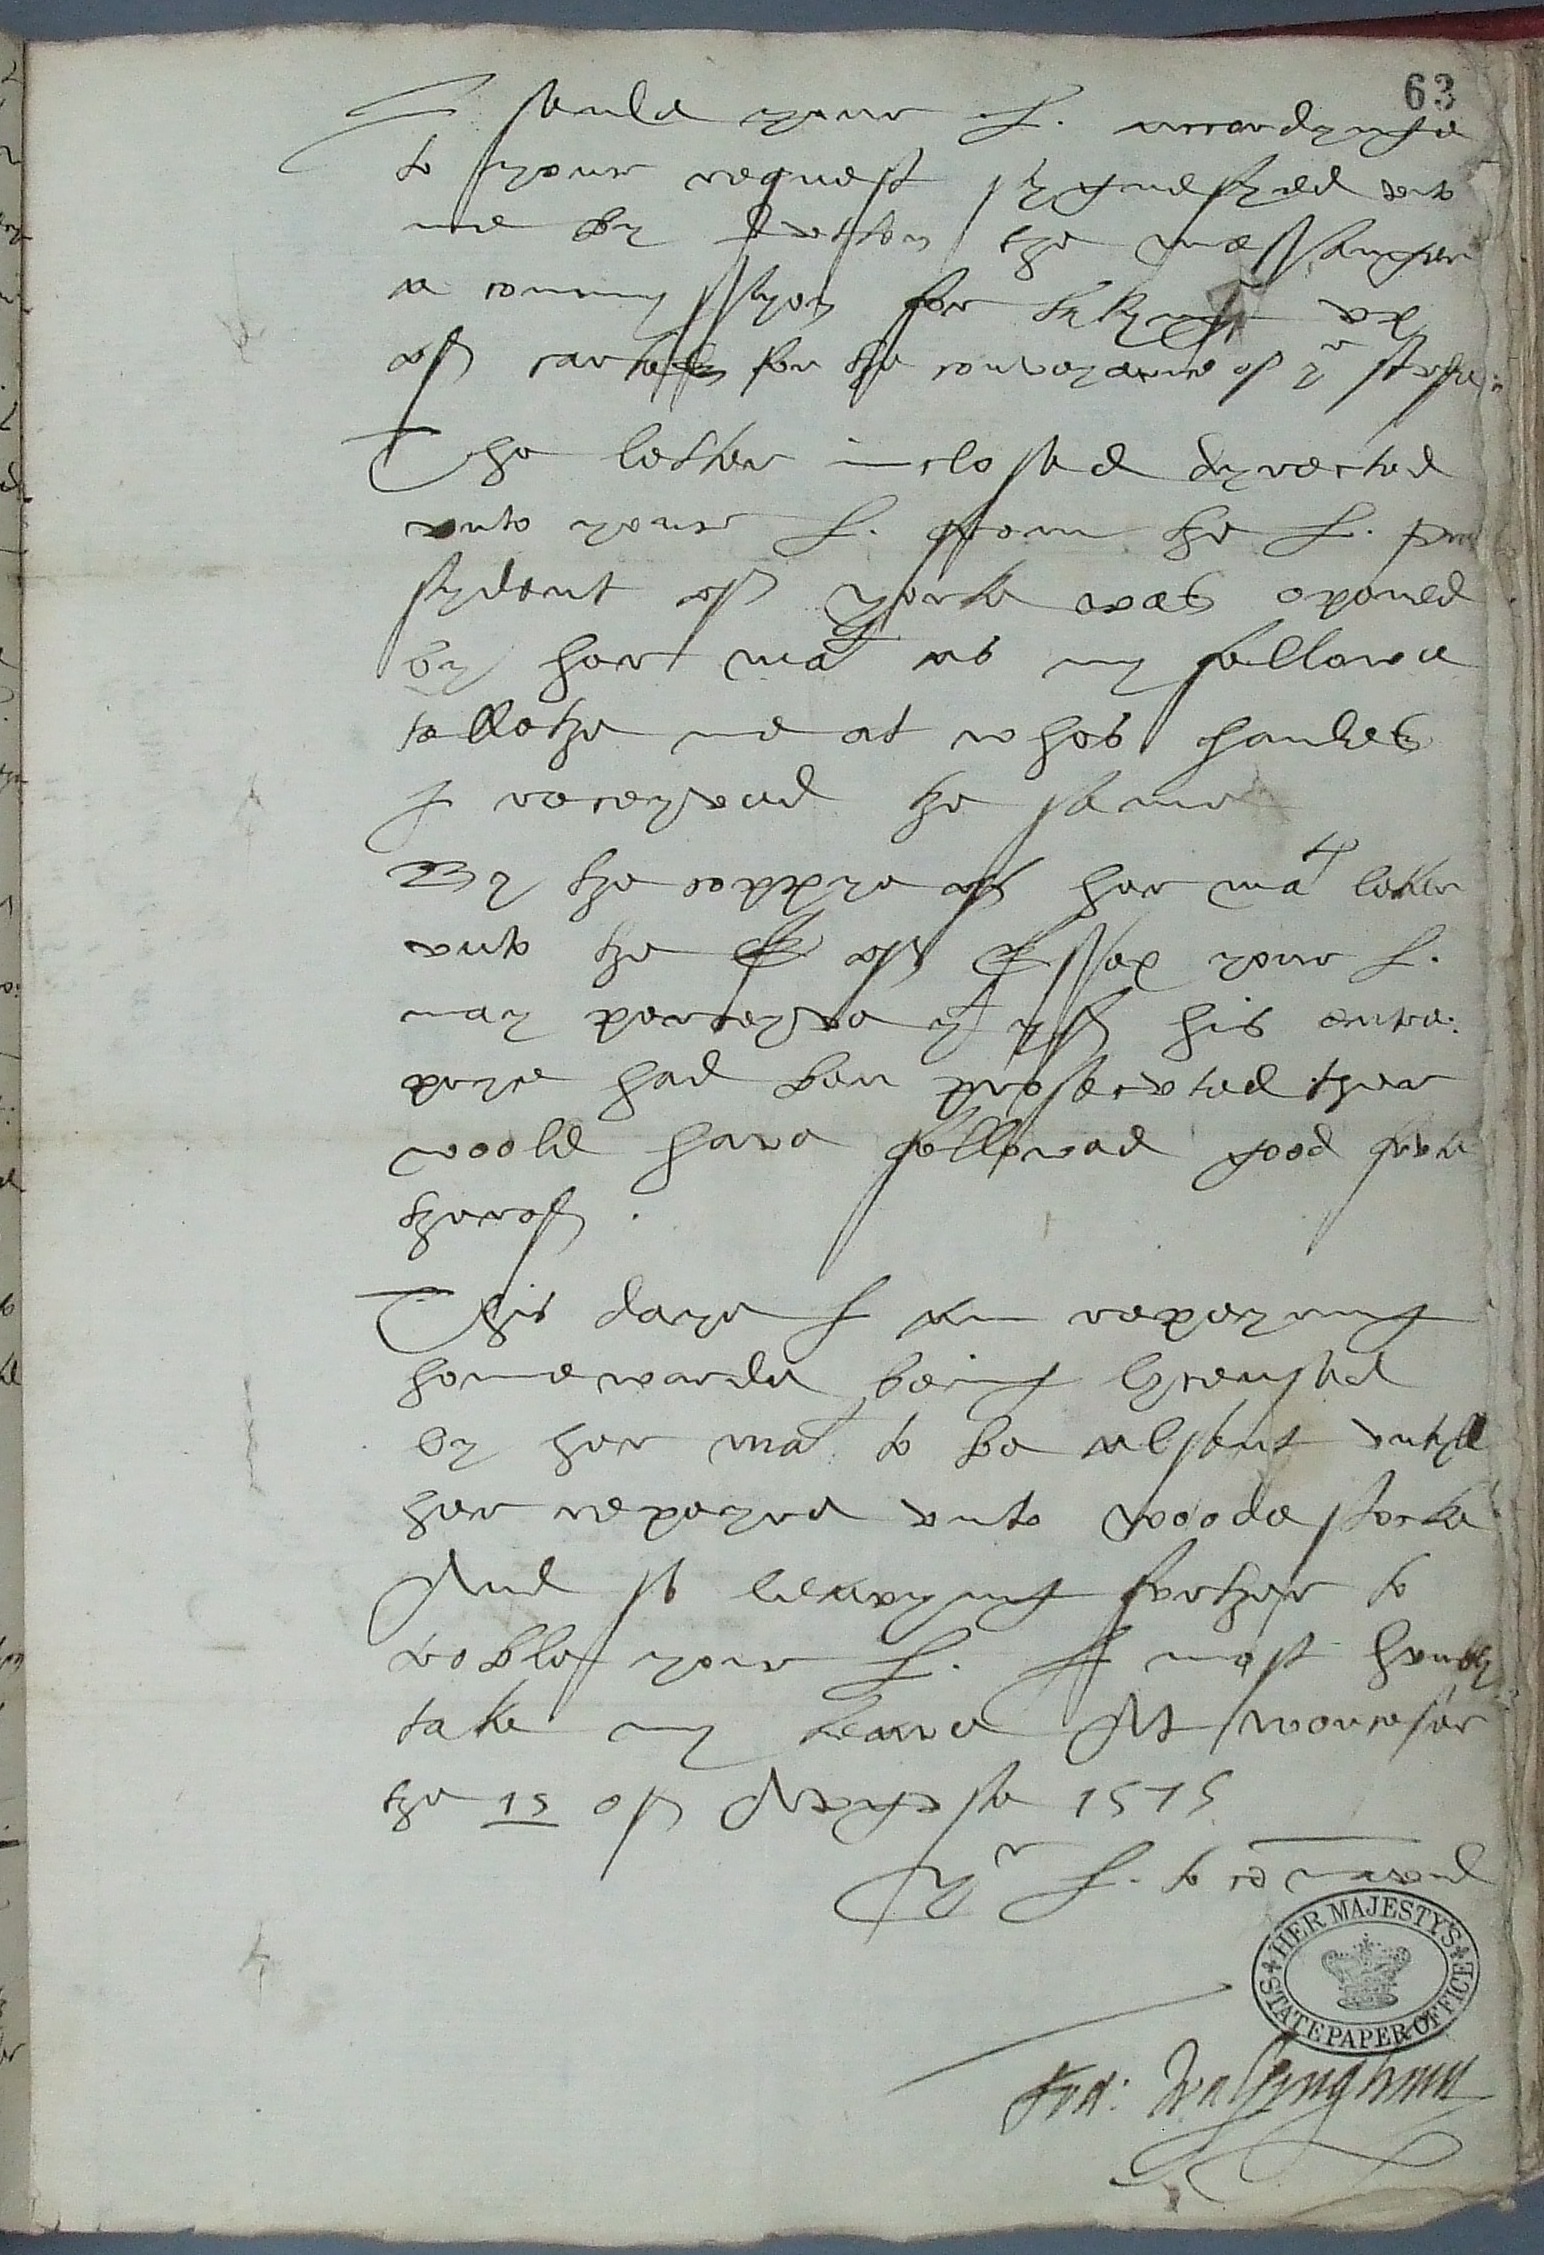 63
I sende your L. accordynge
to your request sygnefyed vnto
me by the messenger
a commyssyon for takyng vp
of cartes for the conveyance of yr stuffe:
The letter inclosed dyrected
vnto your L. from the L. pre
sydent of yorke was opened
by her ma as my fellowe
tellethe me at whos handes
I receyved the same
By the coppye of her ma letter
vnto the E of Essex your L.
may perceyve yt yf his enter:
pryce had ben prosecuted ther
woold have followed good frute
therof.
This daye I am repeyryng
homewarde being lycensed
by her ma to be absent vntyll
her repeyre vnto woodestocke
And so leavyng further to
troble your L. I most humbly
take my leave At worcester
the 15 of Avgvste 1575
Yr L. to comavnd
HER MAJESTY'S STATE PAPER OFFICE
Fra: Walsyngham